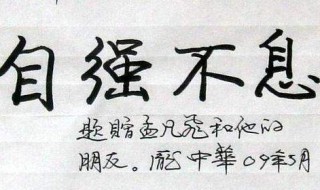 自强不息
题赠孟凡飛和他的
朋友。庞中華 09年5月